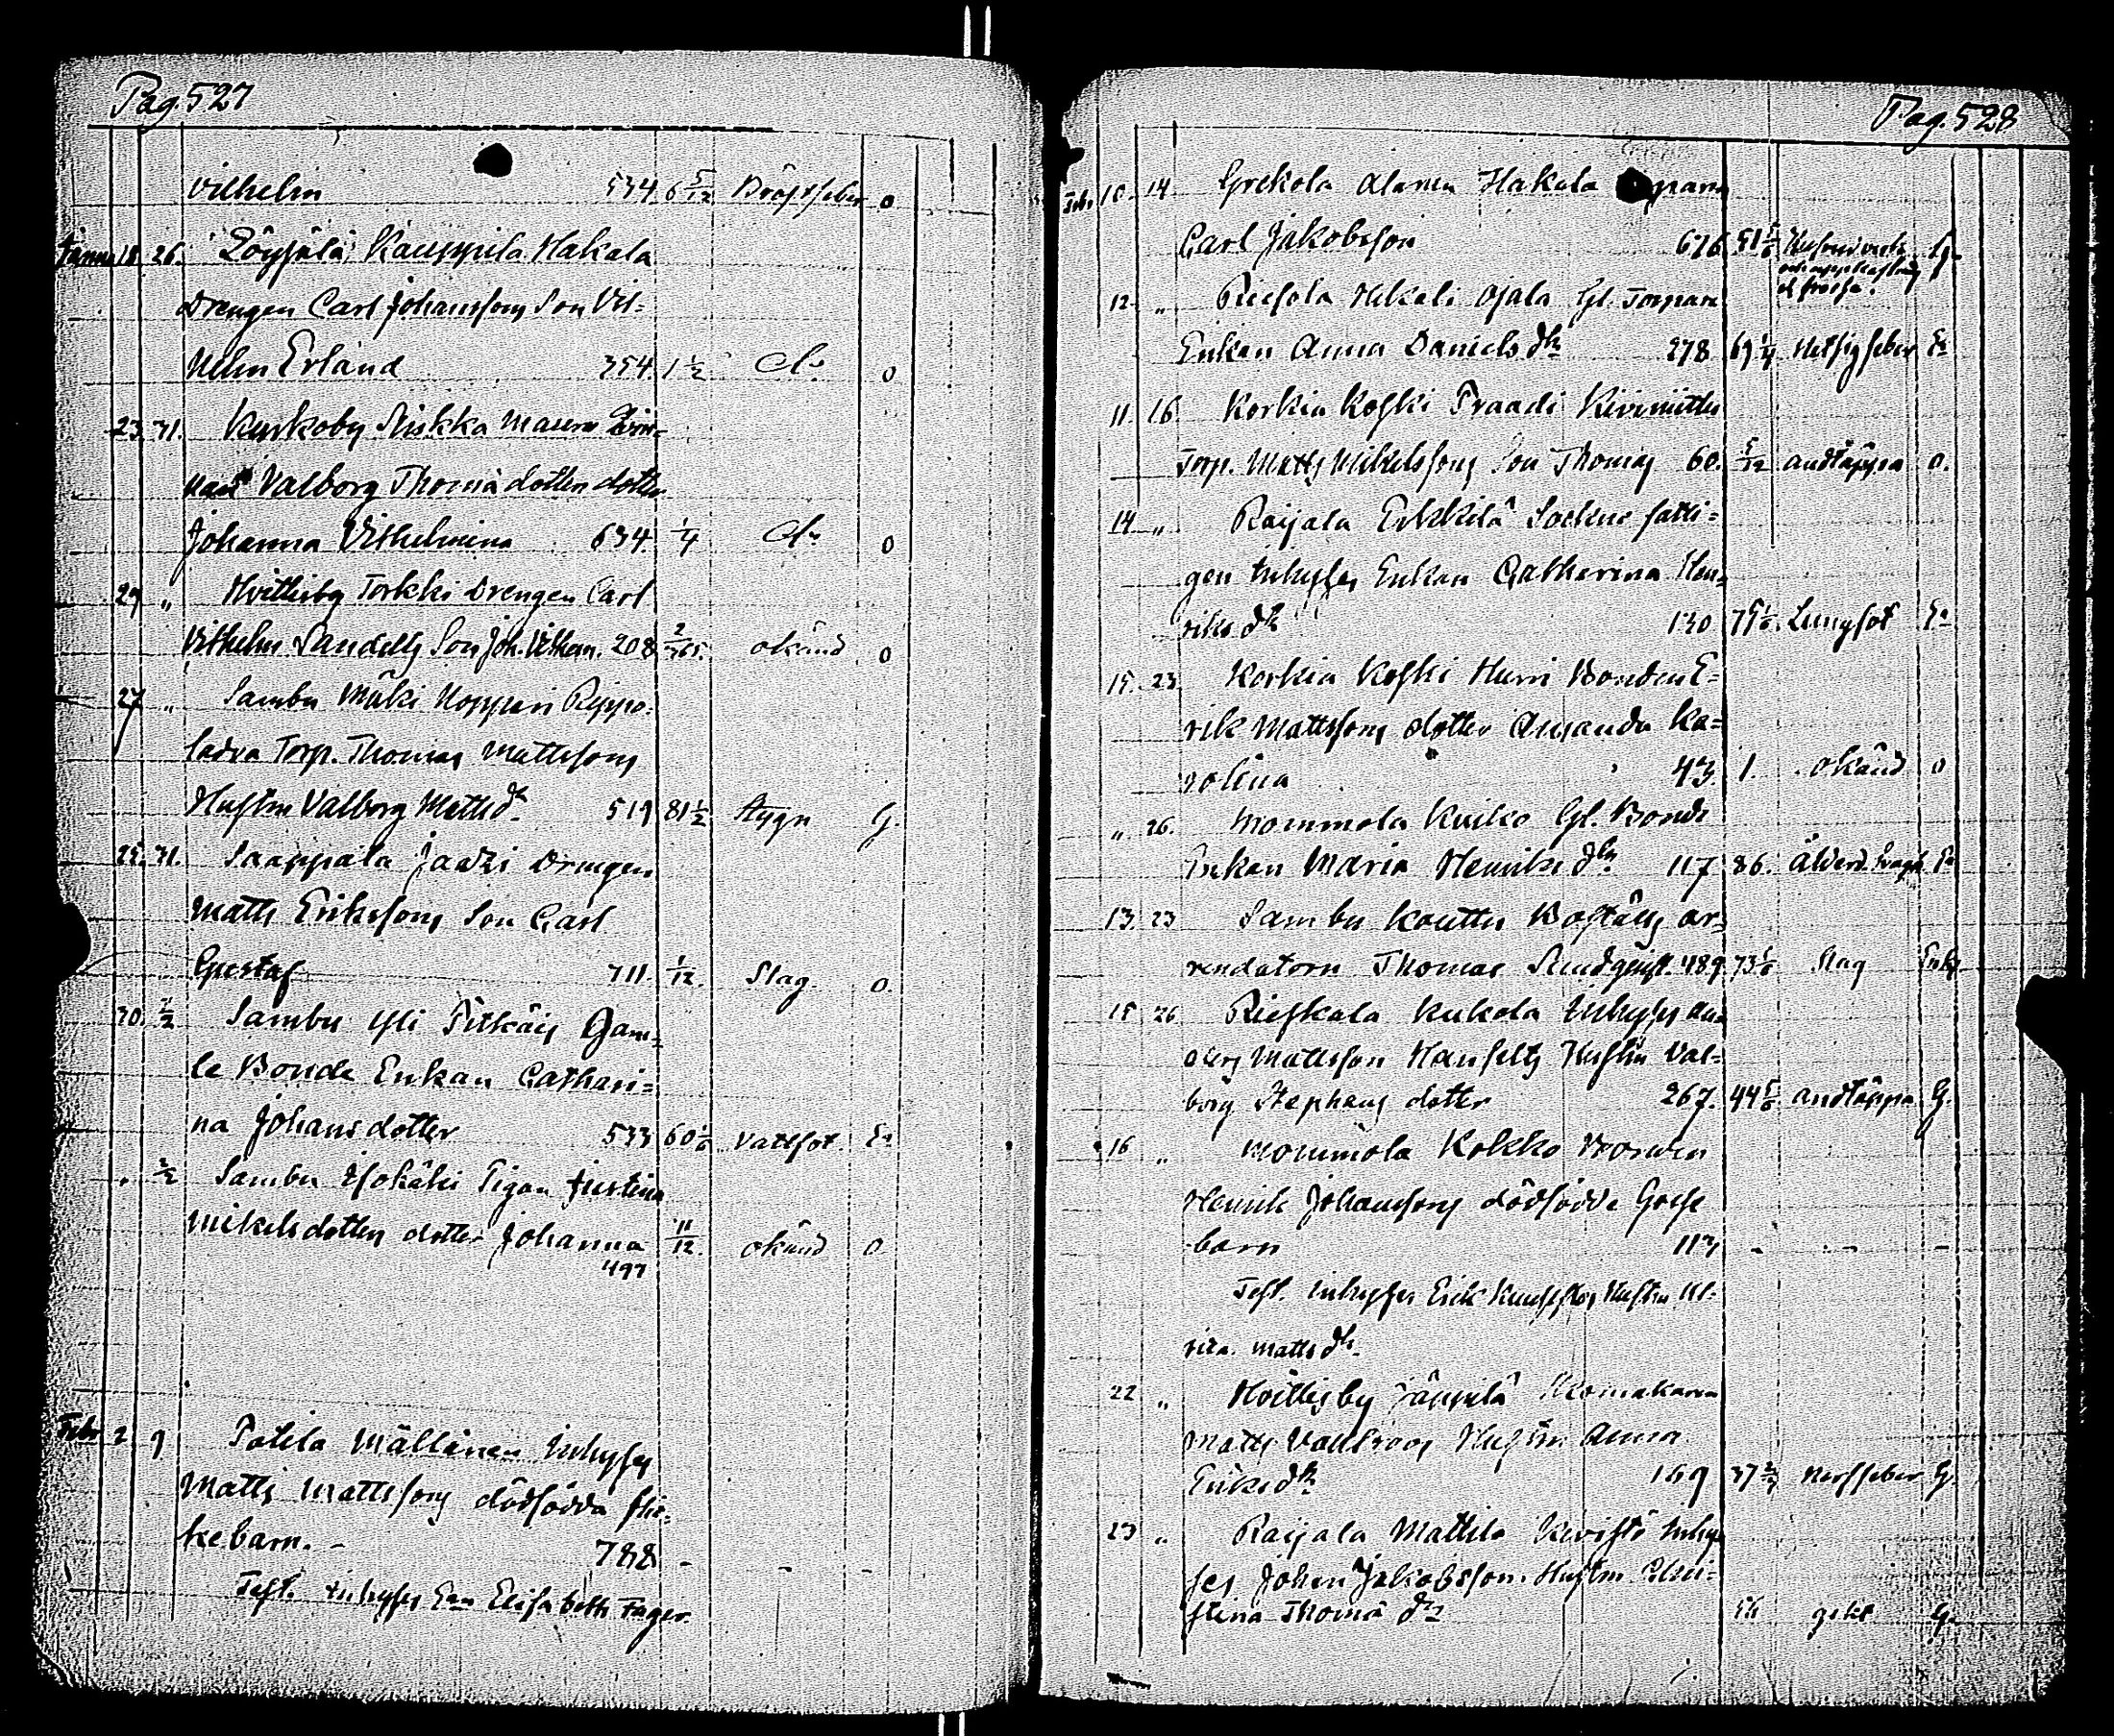 Pag. 527
Vilhelm 534 6 5/12 Bröstfeber 0
Janua 18. 26. Löysälä Kauppila Hakala
Drengen Carl Johanssons Son Vil-
helm Erland 354. 1 1/2 do 0
23. 31. Kyrkoby Siukka
Valborg Thomä dotters dotter
Johanna Vilhelmina 634 1/4 do 0
29 " Hvittisby Torkki Drengen Carl
Vilhelm Sandells Son Joh. Vilhem. 208 2/365. okänd 0
27 " Sambu Mäki Nopperi Reppo-
ladva Torp. Thomas Mattssons
Hustru Valborg Matts dr 519 81 1/2 Stygn G.
25. 31. Saappala Jaazi Drengen
Matts Erikssons Son Carl
Gustaf 711. 1/12. Slag. 0.
30. Sambu Yli Pitkäis Gam-
le Bonde Enkan Cathari-
na Johansdotter 533 60 1/6 Vattsot. Ea
" 2/2 Sambu Isokäki Pigan Justina
Mikelsdotters dotter Johanna 11/12. okänd 0
497
Febr 2 9 Potila Mällinen Inhyses
Matts Mattssons dödfödda flic-
kebarn. - 788 - - -
Test. Inhyses Enn Elisabeth Fager.
Pag. 528
Feb. 10. 14 Grekola Alanen Hakala
Carl Jakobsson 676 51 G.
och
12. " Riesola Mikali Ojala Gl. Torpare
Enkan Anna Daniels dr 278 69 1/4 Hetsigfeber Ea
11. 16. Korkia Koski Praadi Kivinitty
Torp. Matts Mikelssons Son Thomas 60. 5/12 andtäppa 0.
14 " Raijala Erkkilä Sockne fatti-
gen Inhyses Enkan Catharina Hen-
riks dr 130 Lungsot Ea
15. 23 Korkia Koski Hurri Bonden E-
rik Mattssons dotter Amanda Ka-
rolina 43. 1. okänd 0
" 26. Mommola Kuiko Gl. Bonde
Enkan Maria Henriks dr 117 86. Ålderd. Ea
13. 23 Sambu Kouttu Boställs ar-
rendatorn Thomas Sundqvist. 489 73 1/6 Slag Enkl
15 26 Rieskala Kukola Inhyses An-
ders Mattsson Hanselts Hustru Val-
borg Stephans dotter 267. 44 5/6 andtäppa G.
16 " Mommola Kokko
Henrik Johanssons dödfödda Gosse
barn 113 - - -
Test. Inhyses Erik Hustru Ul-
rika Matts dr.
22 " Hvittisby Skomakaren
Matts Hustru Anna
Eriks dr 169 37 Nerffeber G.
23 " Raijala Mattila Kivistö Inhy-
ses Johan Jakobsson Hustru Chri-
stina Thomä dr 56 gikt G.